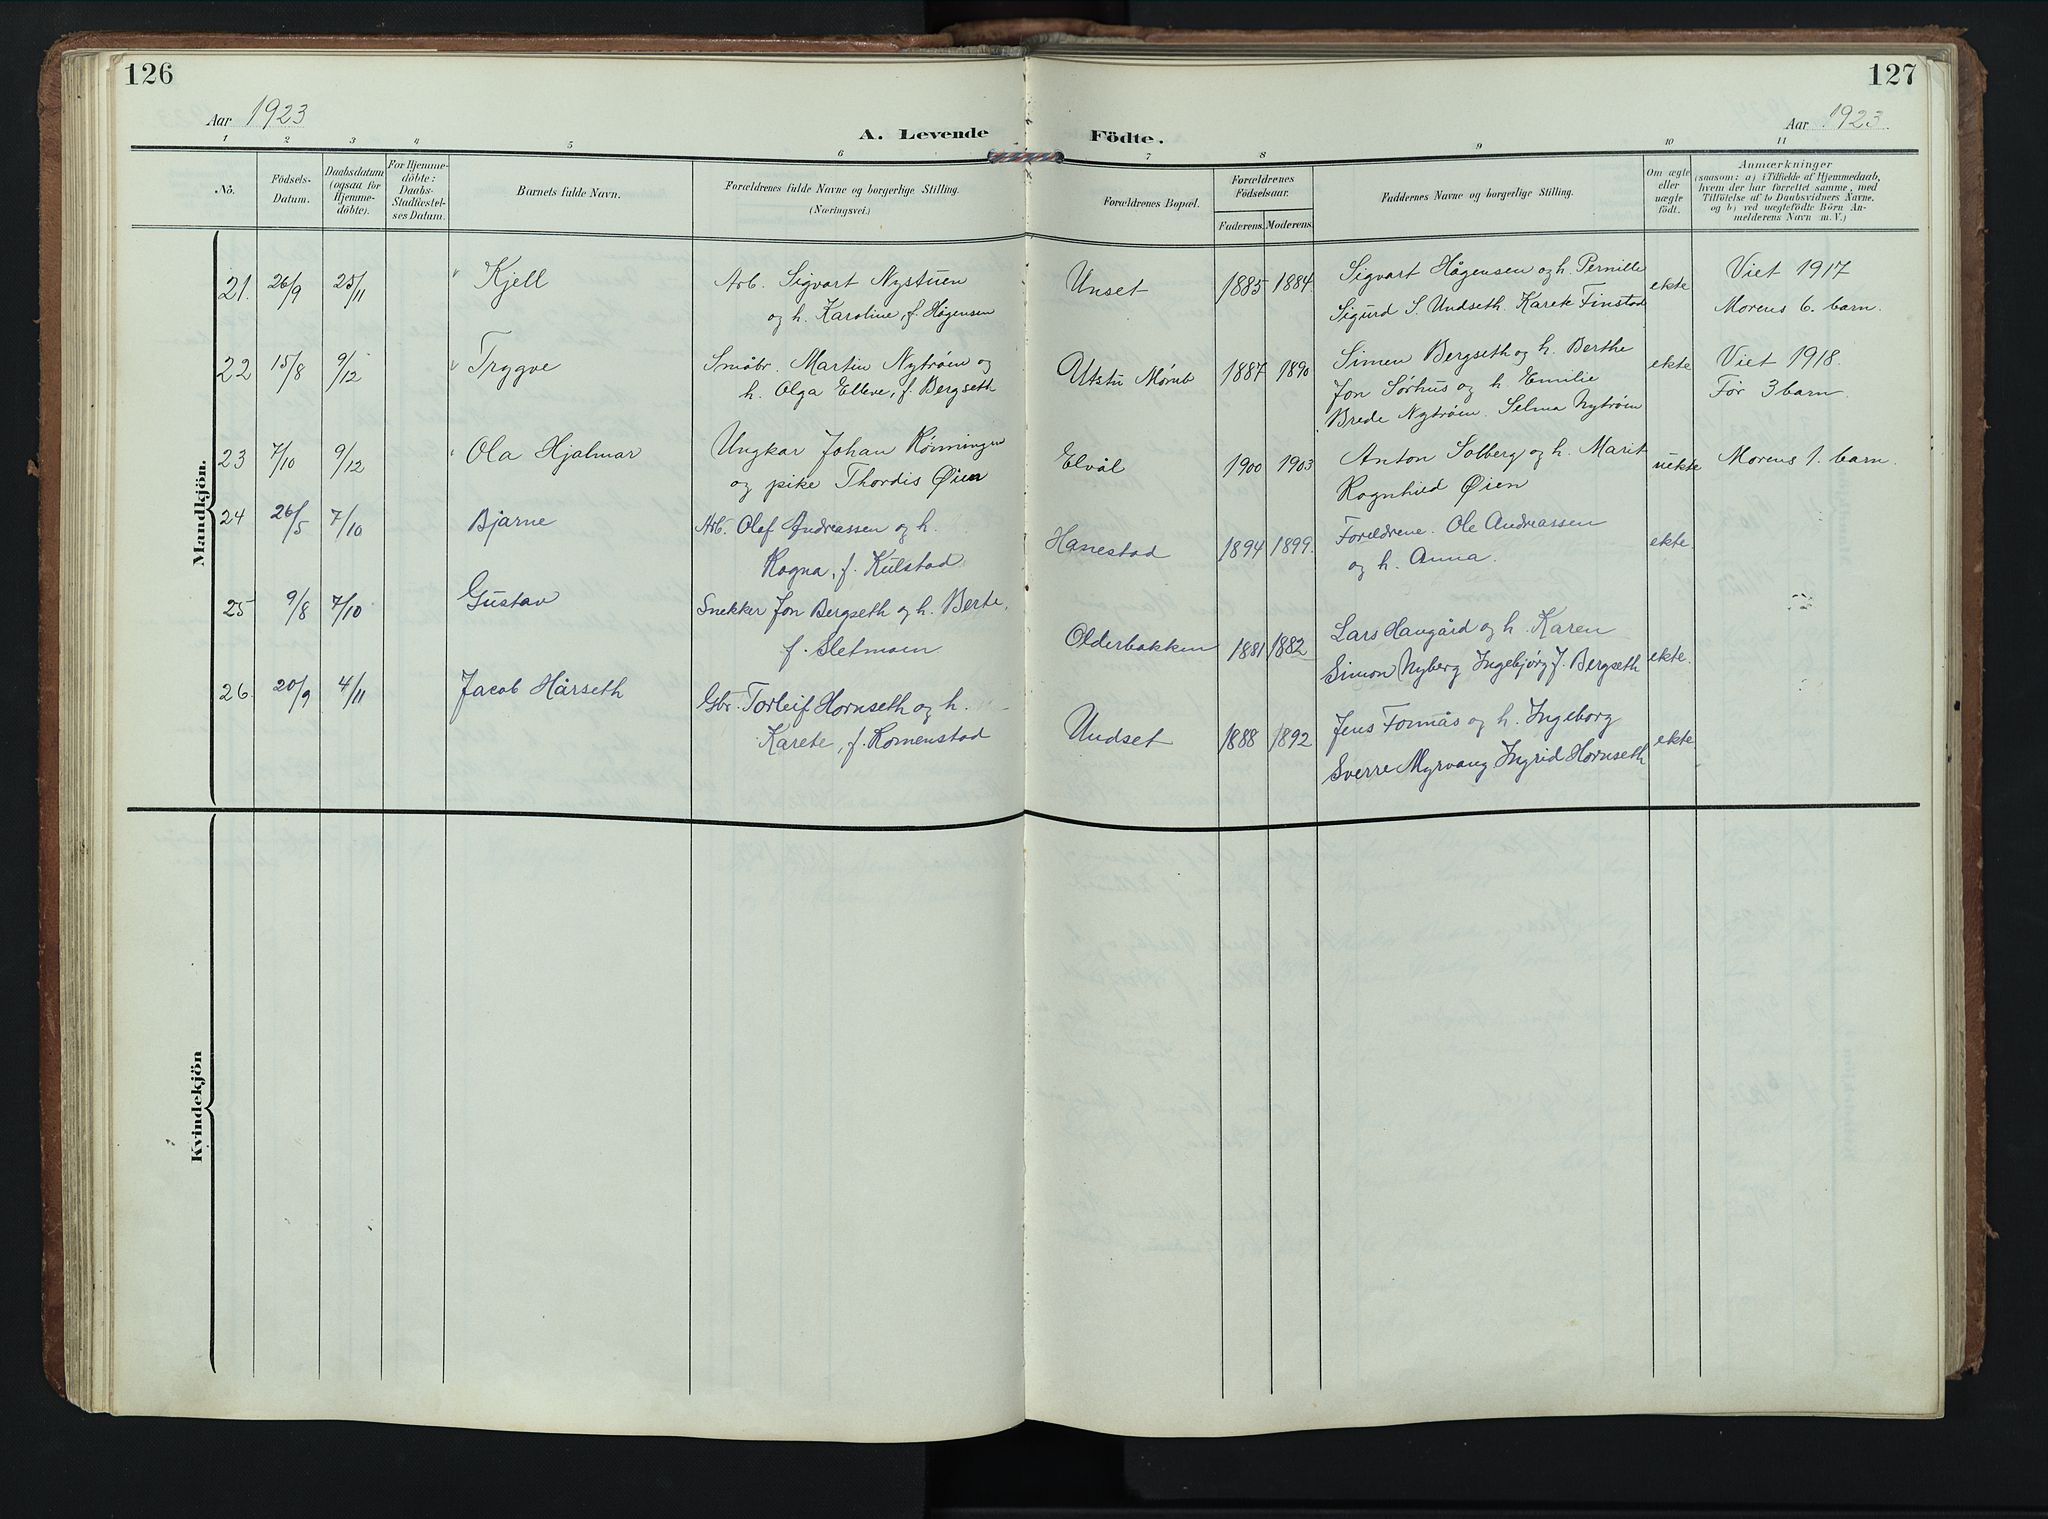 126
127
Aar 1923
Aar 1923.
A. Levende Födte.
1 2 3 4 5 6 7 8 9 10 11
Nö.
Födsels-
Datum.
Daabsdatum
(ogsaa for
Hjemme-
döbte).
For Hjemme-
döbte:
Daabs-
Stadfæstel-
ses Datum.
Barnets fulde Navn.
Forældrenes fulde Navne og borgerlige Stilling.
(Næringsvei.)
Forældrenes Bopæl.
Forældrenes
Födselsaar.
Faderens. Moderens.
Faddernes Navne og borgerlige Stilling.
Om ægte
eller
uægte
födt.
Anmærkninger
(saasom: a) i Tilfælde af Hjemmedaab,
hvem der har forrettet samme, med
Tilföielse af to Daabsvidners Navne.
og b) ved uægtefödte Börn An-
melderens Navn m. V.)
Mandkjön.
21. 26/9 25/11 Kjell Arb. Sigvart Nystuen Unset 1885 1884 Sigvart Hågensen og h. Pernille ekte Viet 1917
og h. Karoline, f. Hågensen Sigurd S. Undseth. Karete Finstad Morens 6. barn.
22 15/8 9/12 Trygve Småbr. Martin Nytrøen og Utstu Mørub 1887 1890 Simen Bergseth og h. Berthe ekte Viet 1918.
h. Olga Elleve, f. Bergseth Jon Sørhus og h. Emilie Før 3 barn.
Brede Nytrøen. Selma Nytrøen
23 7/10 9/12 Ola Hjalmar Ungkar Johan Rønningen Elvål 1900 1903 Anton Solberg og h. Marit uekte Morens 1. barn.
og pike Thordis Øien Ragnhild Øien
24 26/5 7/10 Bjarne Arb. Olaf Andreassen og h. Hanestad 1894 1899. Foreldrene. Ole Andreassen ekte.
Ragna, f. Kulstad og h. Anna.
25 9/8 7/10 Gustav Snekker Jon Bergseth og h. Berte, Olderbakken 1881 1882 Lars Haugård og h. Karen ekte.
f. Sletmoen Simon Nyberg Ingebjørg J. Bergseth
26. 20/9 4/11 Jacob Hårseth Gbr. Torleif Hornseth og h. Undset 1888 1892 Jens Fonnås og h. Ingeborg ekte
Karete, f. Romenstad Sverre Myrvang Ingrid Hornseth
Kvindekjön